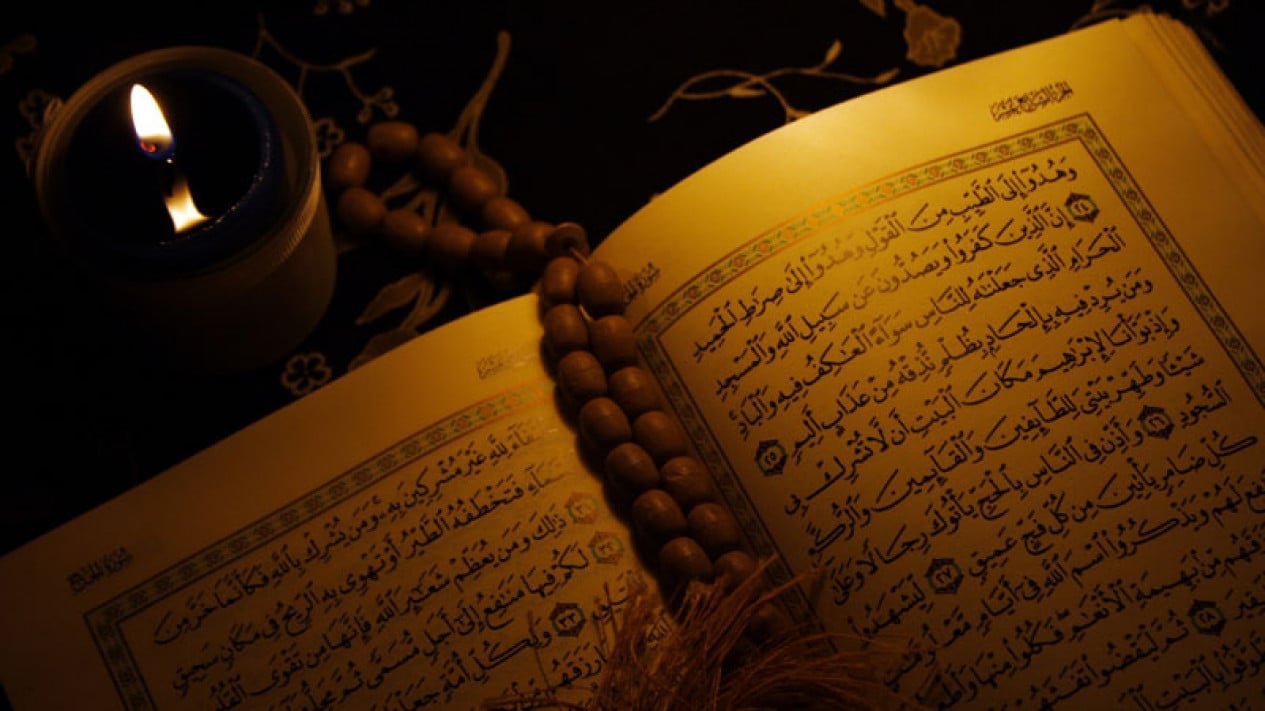 الجزء السابع عشر
سورة
وَهُدُوٓا۟ إِلَى ٱلطَّيِّبِ مِنَ ٱلْقَوْلِ وَهُدُوٓا۟ إِلَىٰ صِرَٰطِ ٱلْحَمِيدِ
٢٤ إِنَّ ٱلَّذِينَ كَفَرُوا۟ وَيَصُدُّونَ عَن سَبِيلِ ٱللَّهِ وَٱلْمَسْجِدِ
ٱلْحَرَامِ ٱلَّذِى جَعَلْنَٰهُ لِلنَّاسِ سَوَآءً ٱلْعَٰكِفُ فِيهِ وَٱلْبَادِ
وَمَن يُرِدْ فِيهِ بِإِلْحَادٍۭ بِظُلْمٍ نُّذِقْهُ مِنْ عَذَابٍ أَلِيمٍ ٢٥
وَإِذْ بَوَّأْنَا لِإِبْرَٰهِيمَ مَكَانَ ٱلْبَيْتِ أَن لَّا تُشْرِكْ بِى
شَيْـًٔا وَطَهِّرْ بَيْتِىَ لِلطَّآئِفِينَ وَٱلْقَآئِمِينَ وَٱلرُّكَّعِ
ٱلسُّجُودِ ٢٦ وَأَذِّن فِى ٱلنَّاسِ بِٱلْحَجِّ يَأْتُوكَ رِجَالًا وَعَلَىٰ
كُلِّ ضَامِرٍ يَأْتِينَ مِن كُلِّ فَجٍّ عَمِيقٍ ٢٧ لِّيَشْهَدُوا۟
لَهُمْ وَيَذْكُرُوا۟ ٱسْمَ ٱللَّهِ فِىٓ أَيَّامٍ
مِّنۢ بَهِيمَةِ ٱلْأَنْعَٰمِ فَكُلُوا۟ مِنْهَا
٢٨ ثُمَّ لْيَقْضُوا۟ تَفَثَهُمْ
بِٱلْبَيْتِ
سورة الحج
لِلَّهِ غَيْرَ مُشْرِكِينَ بِهِۦ وَمَن يُشْرِكْ بِٱللَّهِ فَكَأَنَّمَا خَرَّ مِنَ
فَتَخْطَفُهُ ٱلطَّيْرُ أَوْ تَهْوِى بِهِ ٱلرِّيحُ فِى مَكَانٍ سَحِيقٍ
٣١ ذَٰلِكَ وَمَن يُعَظِّمْ شَعَٰٓئِرَ ٱللَّهِ فَإِنَّهَا مِن تَقْوَى
٣٢ لَكُمْ فِيهَا مَنَٰفِعُ إِلَىٰٓ أَجَلٍ مُّسَمًّى ثُمَّ
٣٣ وَلِكُلِّ أُمَّةٍ